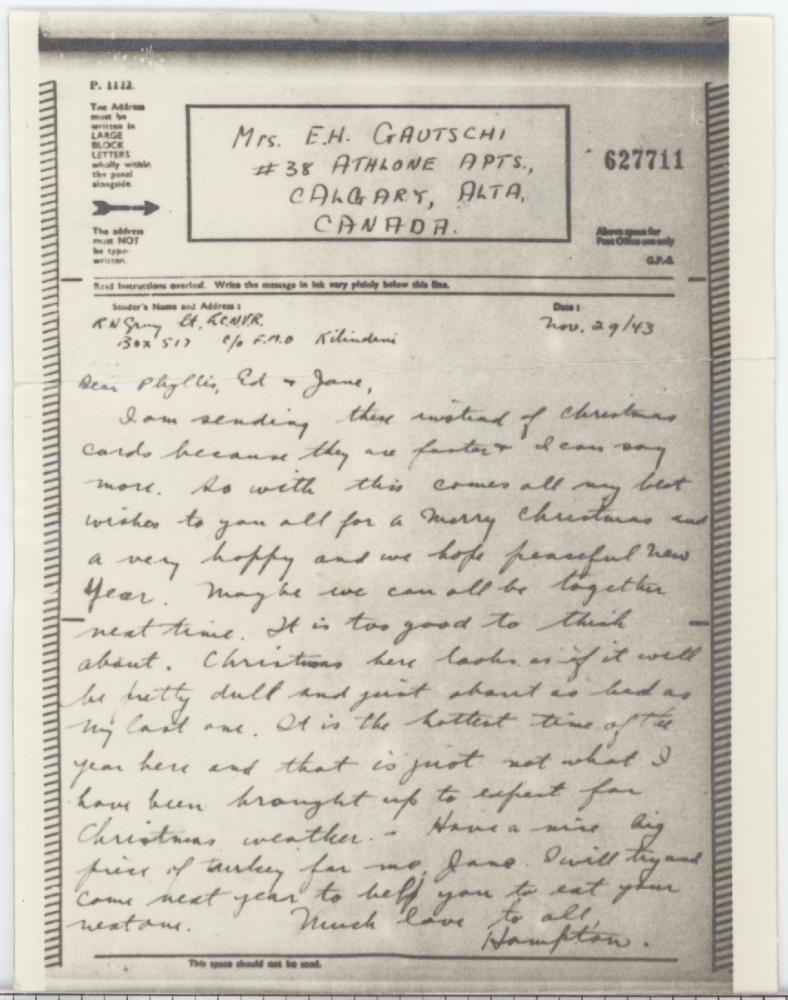 P. 1122.
The Address
must be
written in
LARGE
BLOCK
LETTERS
wholly within
the panel
alongside.
The address
must NOT
be type-
written.
Mrs. E.H. GAUTSCHI
#38 ATHLONE APTS.,
CALGARY, ALTA,
CANADA.
627711
Above space for
Post Office use only
G.P.S.
Read Instructions overleaf. Write the message in ink very plainly below this line.
Sender's Name and Address:
Date:
R N Gray Lt, R.C.N.V.R.
Box 517 c/o F.M.O Kilindini
Nov. 29/43
Dear Phyllis, Ed & Jane,
I am sending these instead of Christmas
cards because they are faster & I can say
more. So with this comes all my best
wishes to you all for a Merry Christmas and
a very happy and we hope peaceful New
Year. Maybe we can all be together
next time. It is too good to think
about. Christmas here looks as if it will
be pretty dull and just about as bad as
my last one. It is the hottest time of the
year here and that is just not what I
have been brought up to expect for
Christmas weather. - Have a nice big
piece of turkey for me, Jane. I will try and
come next year to help you to eat your
next one. Much love to all,
Hampton.
This space should not be used.